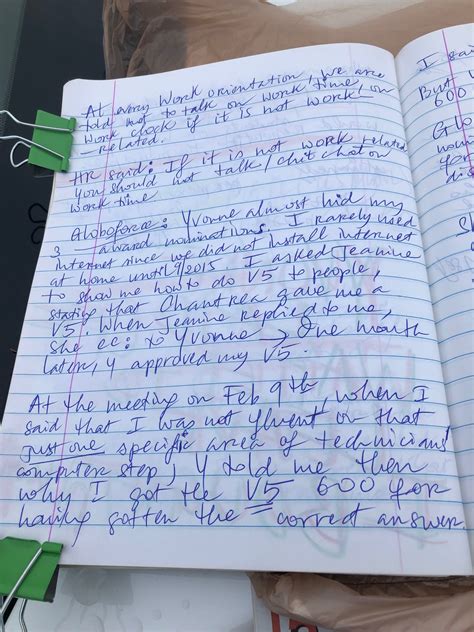 At every Work orientation, we are
told not to talk on work time/on
work clock if it is not work
related.
HR said: If it is not work related
you should not talk/chitchat on
work time
Globoforce: Yvonne almost hid my
3 award nominations. I rarely used
internet since we did not install internet
at home until 9/2015. I asked Jeanine
to show me how to do V5 to people,
stating that Chantrea gave me a
V5. When Jeanine replied to me,
she cc: to Yvonne → One month
later, Y approved my V5.
At the meeting on Feb 9th, when I
said that I was not fluent on that
just one specific area of technicians'
computer step, Y told me then
why I got the V5 600 for
having gotten the correct answer.
I sai
But
600
Glo
nom
you
dis
she